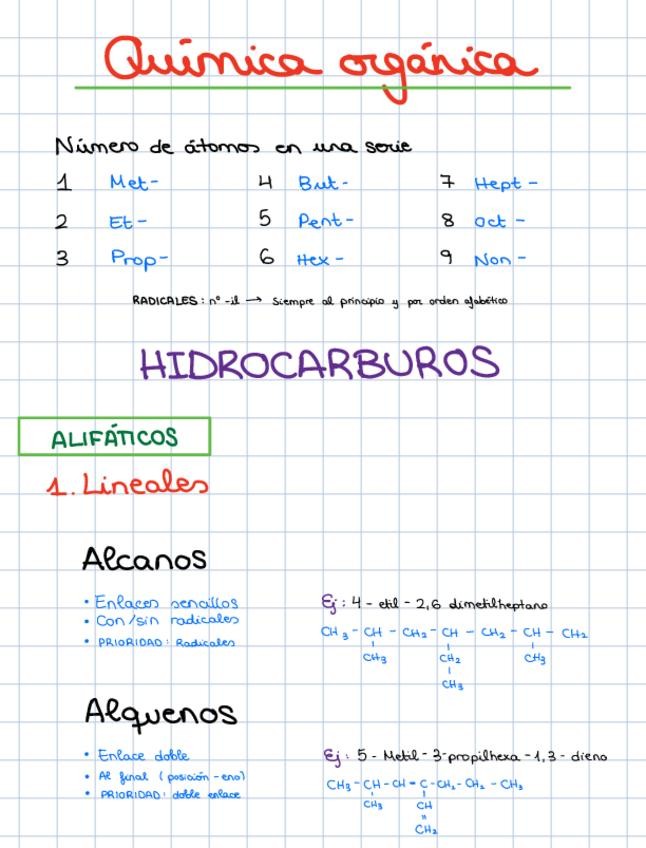 Química orgánica
Número de átomos en una serie
1 Met- 4 But- 7 Hept-
2 Et- 5 Pent- 8 Oct-
3 Prop- 6 Hex- 9 Non-
RADICALES: nº -il → Siempre al principio y por orden alfabético
HIDROCARBUROS
ALIFÁTICOS
1. Lineales
Alcanos
• Enlaces sencillos
• Con/sin radicales
• PRIORIDAD: Radicales
Ej: 4 - etil - 2,6 dimetilheptano
CH3 - CH - CH2 - CH - CH2 - CH - CH2
CH3 CH2 CH3
CH3
Alquenos
• Enlace doble
• Al final (posición -eno)
• PRIORIDAD: doble enlace
Ej: 5 - Metil - 3-propilhexa - 1,3 - dieno
CH3 - CH - CH = C - CH2 - CH2 - CH3
CH3 CH
=
CH2